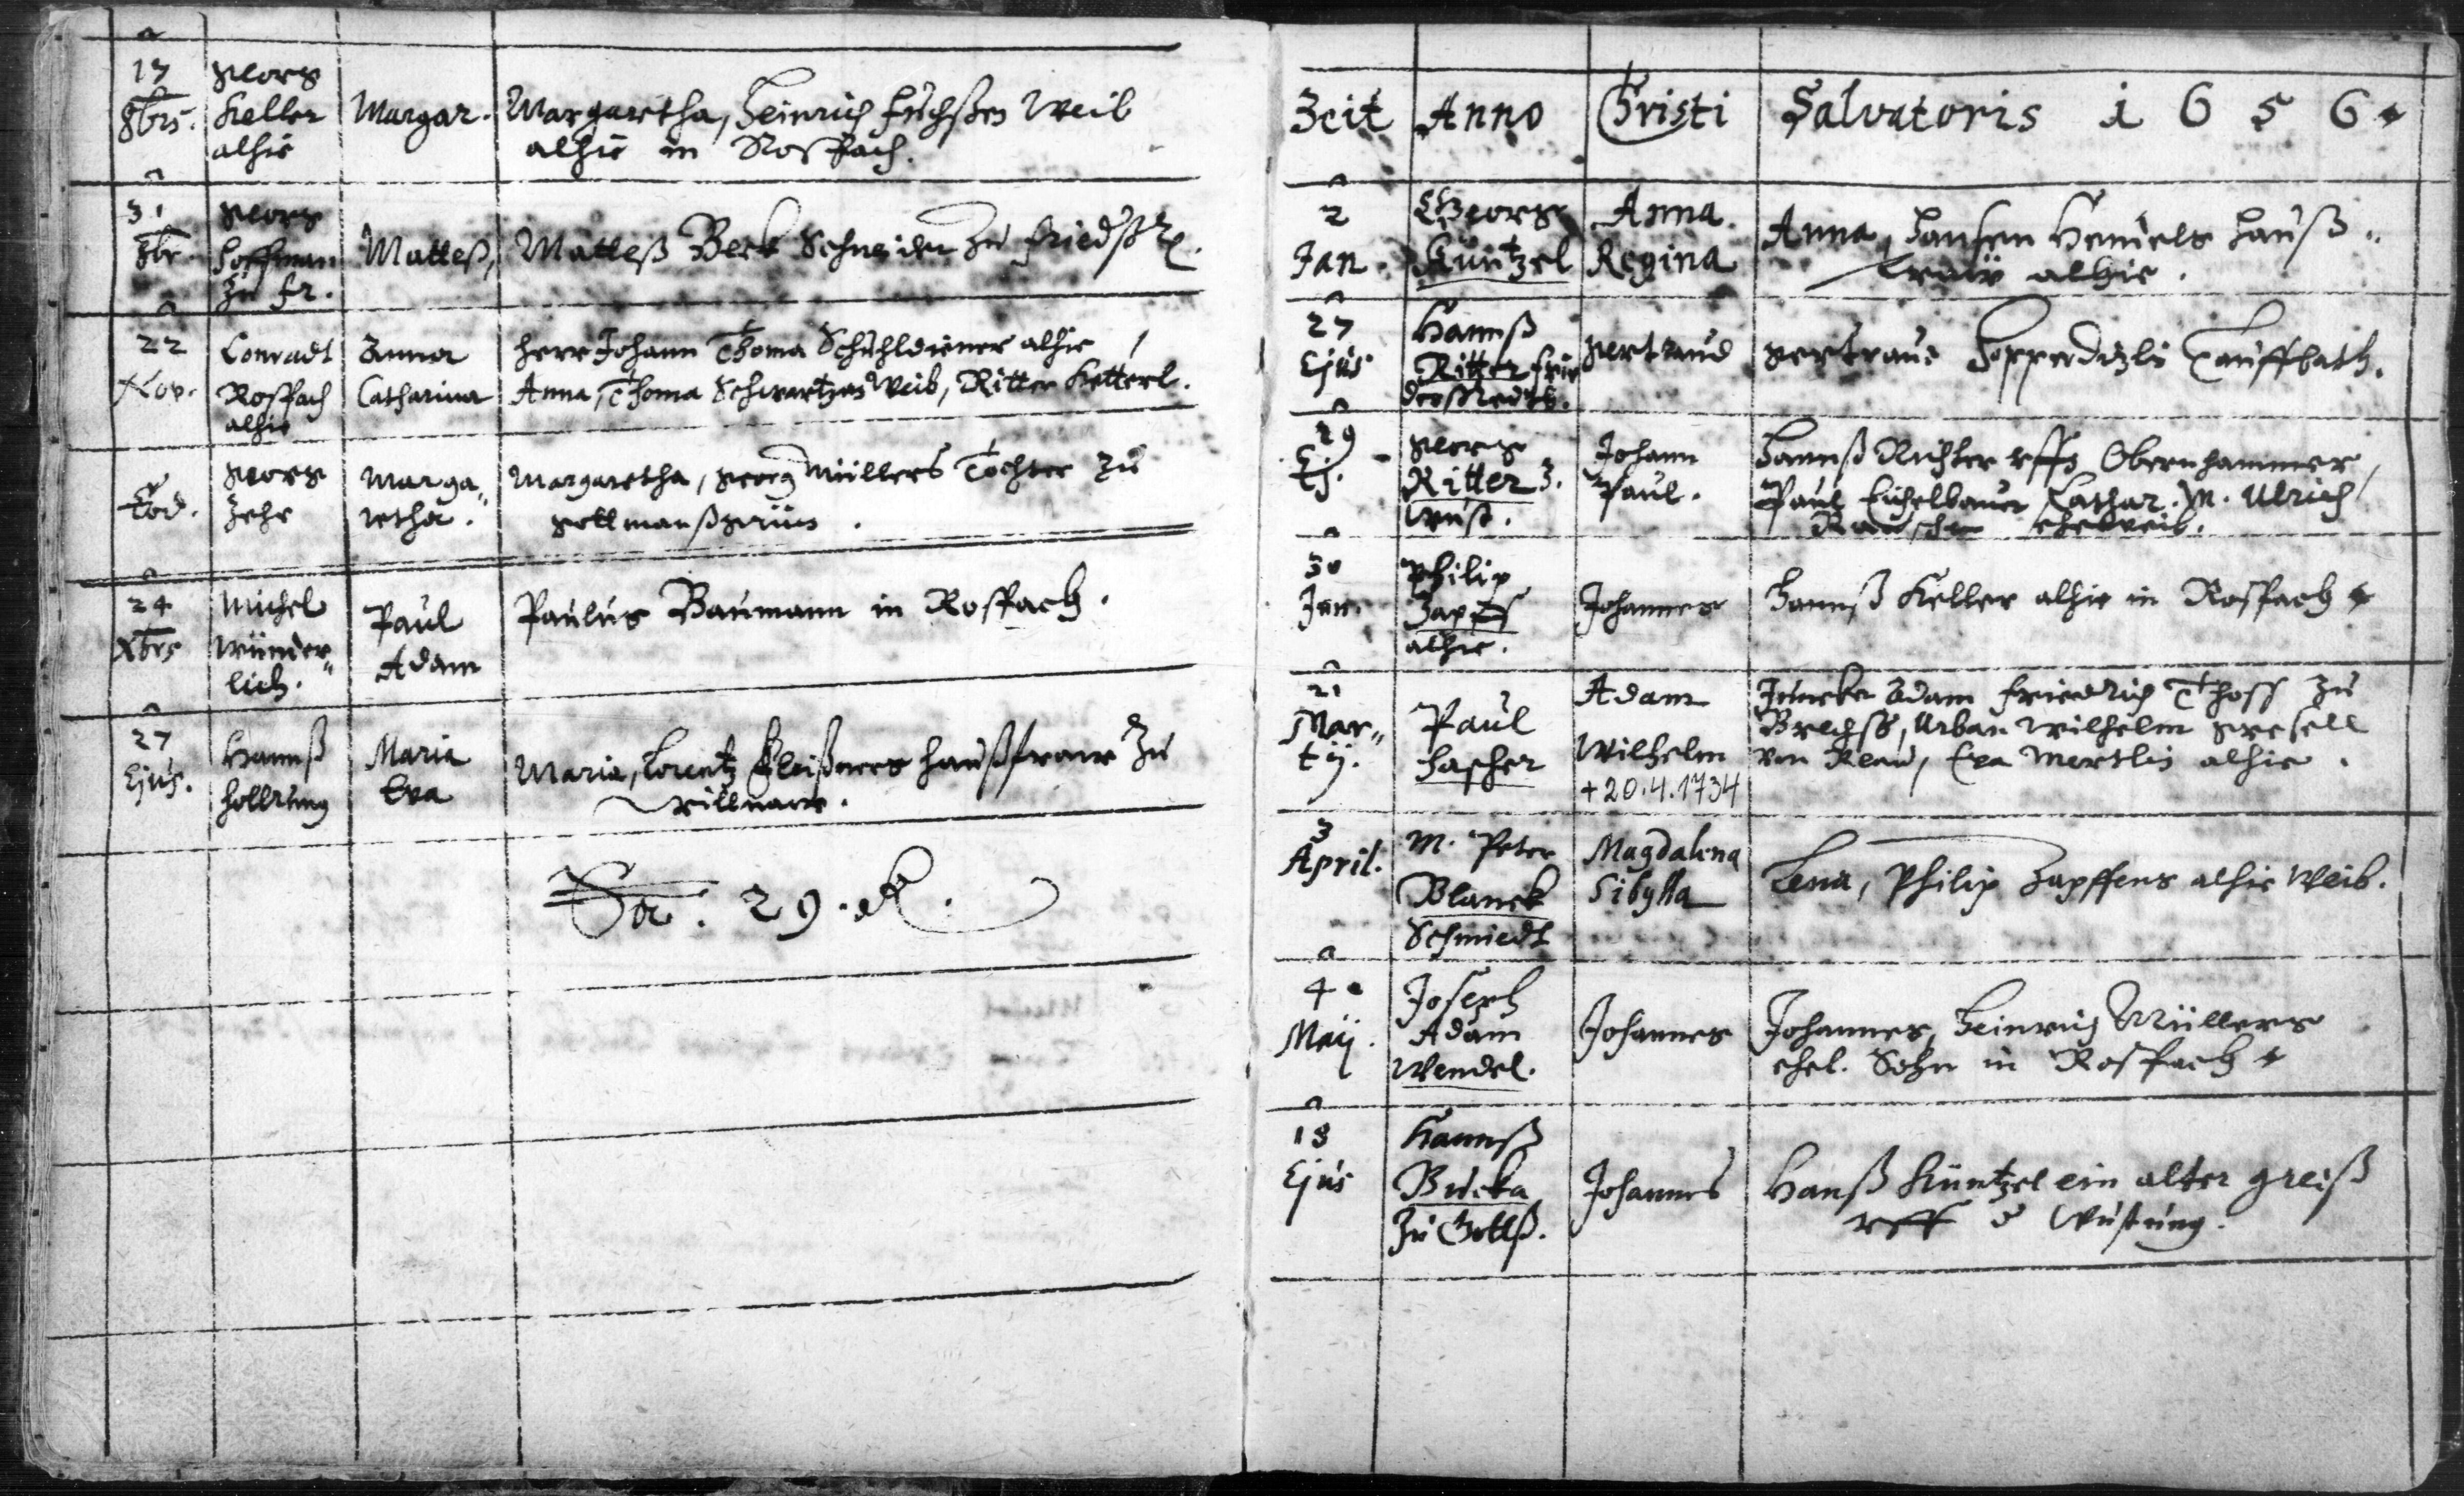 17
8brs.
Georg
Keller
alhie
Margar.
Margaretha, Heinrich Fuchsßes Weib
alhie in Rospach.
31
8br.
Georg
Hoffman
zu Fr.
Matteß,
Matteß Beck Schneider zu
22
Nov.
Conradt
Rospach
alhie
Anna
Catharina
Herr Johann Thoma Schuhldiener alhie
Anna, Thoma Schwartzes Weib, Ritter Ketterl.
Eod.
Georg
Marga„
retha.
Margaretha, Georg Müllers Tochter zu
24
Xbrs
Michel
Wunder„
lich.
Paul
Adam
Paulus Baumann in Rospach.
27
Ejus.
Hannß
Hollrung
Maria
Eva
Maria, Lorentz Haußfraw zu
29.
Zeit Anno Christi Salvatoris 1656
2
Jan.
Georg
Küntzel
Anna
Regina
Anna, Hansen Hendels Hauß„
fraw alhie.
27
Ejus
Hannß
Ritter
Gertraud
Gertraud
29
Ej.
Georg
Ritter z.
Wüst.
Johann
Paul.
Hannß Richter uffs Obernhammer,
Paul Eichelbauer Cathar. M. Ulrich
eheweib.
30
Jan.
Philip
Zapff
alhie.
Johannes
Hannß Keller alhie in Rospach
21
Mar„
tij.
Paul
Hascher
Adam
Wilhelm
+ 20.4.1734
Juncker Adam Friedrich Thoss zu
Urban Wilhelm
von Eva Mertlin alhie.
3
April.
M. Peter
Blanck
Schmiedt
Magdalena
Sibylla
Lena, Philip Zapffens alhie Weib.
4
Maij.
Joseph
Adam
Wendel.
Johannes
Johannes, Heinrich Müllers
ehel. Sohn in Rospach
18
Ejus
Hannß
Bucka
zu Gottß.
Johannes
Hanß Küntzel ein alter greiß
uff d Wüstung.